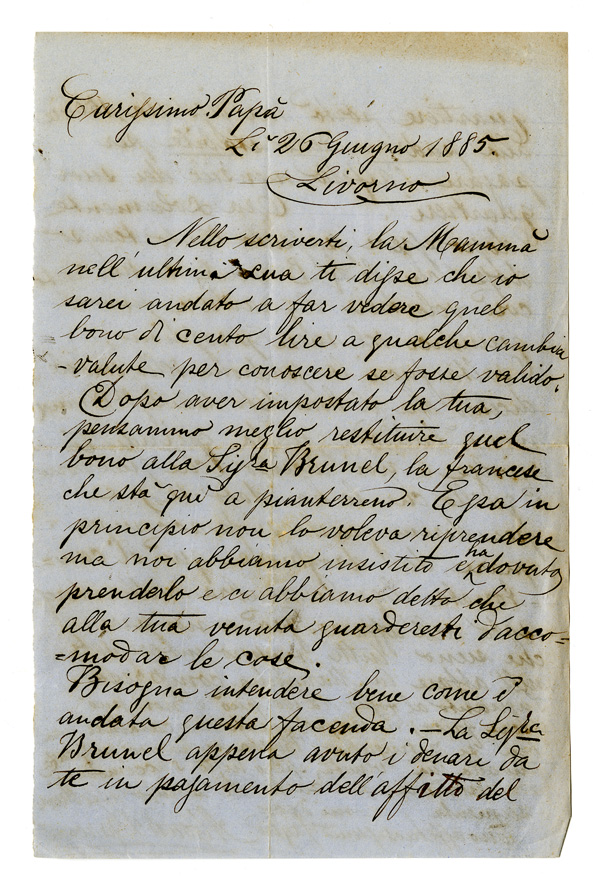 Carissimo Papà
Li 26 Giugno 1885.
Livorno
Nello scriverti, la Mammà
nell'ultima sua ti disse che io
sarei andato a far vedere quel
bono di cento lire a qualche cambia
-valute per conoscere se fosse valido.
Dopo aver impostato la tua,
pensammo meglio restituire quel
bono alla Sigra Brunel, la francese
che stà quì a pianterreno. Essa in
principio non lo voleva riprendere
ma noi abbiamo insistito e ha dovuto
prenderlo e ci abbiamo detto che
alla tua venuta guarderesti d'acco=
=modar le cose.
Bisogna intendere bene come è
andata questa facenda. — La Sigra
Brunel appena avuto i denari da
te in pagamento dell'affitto del